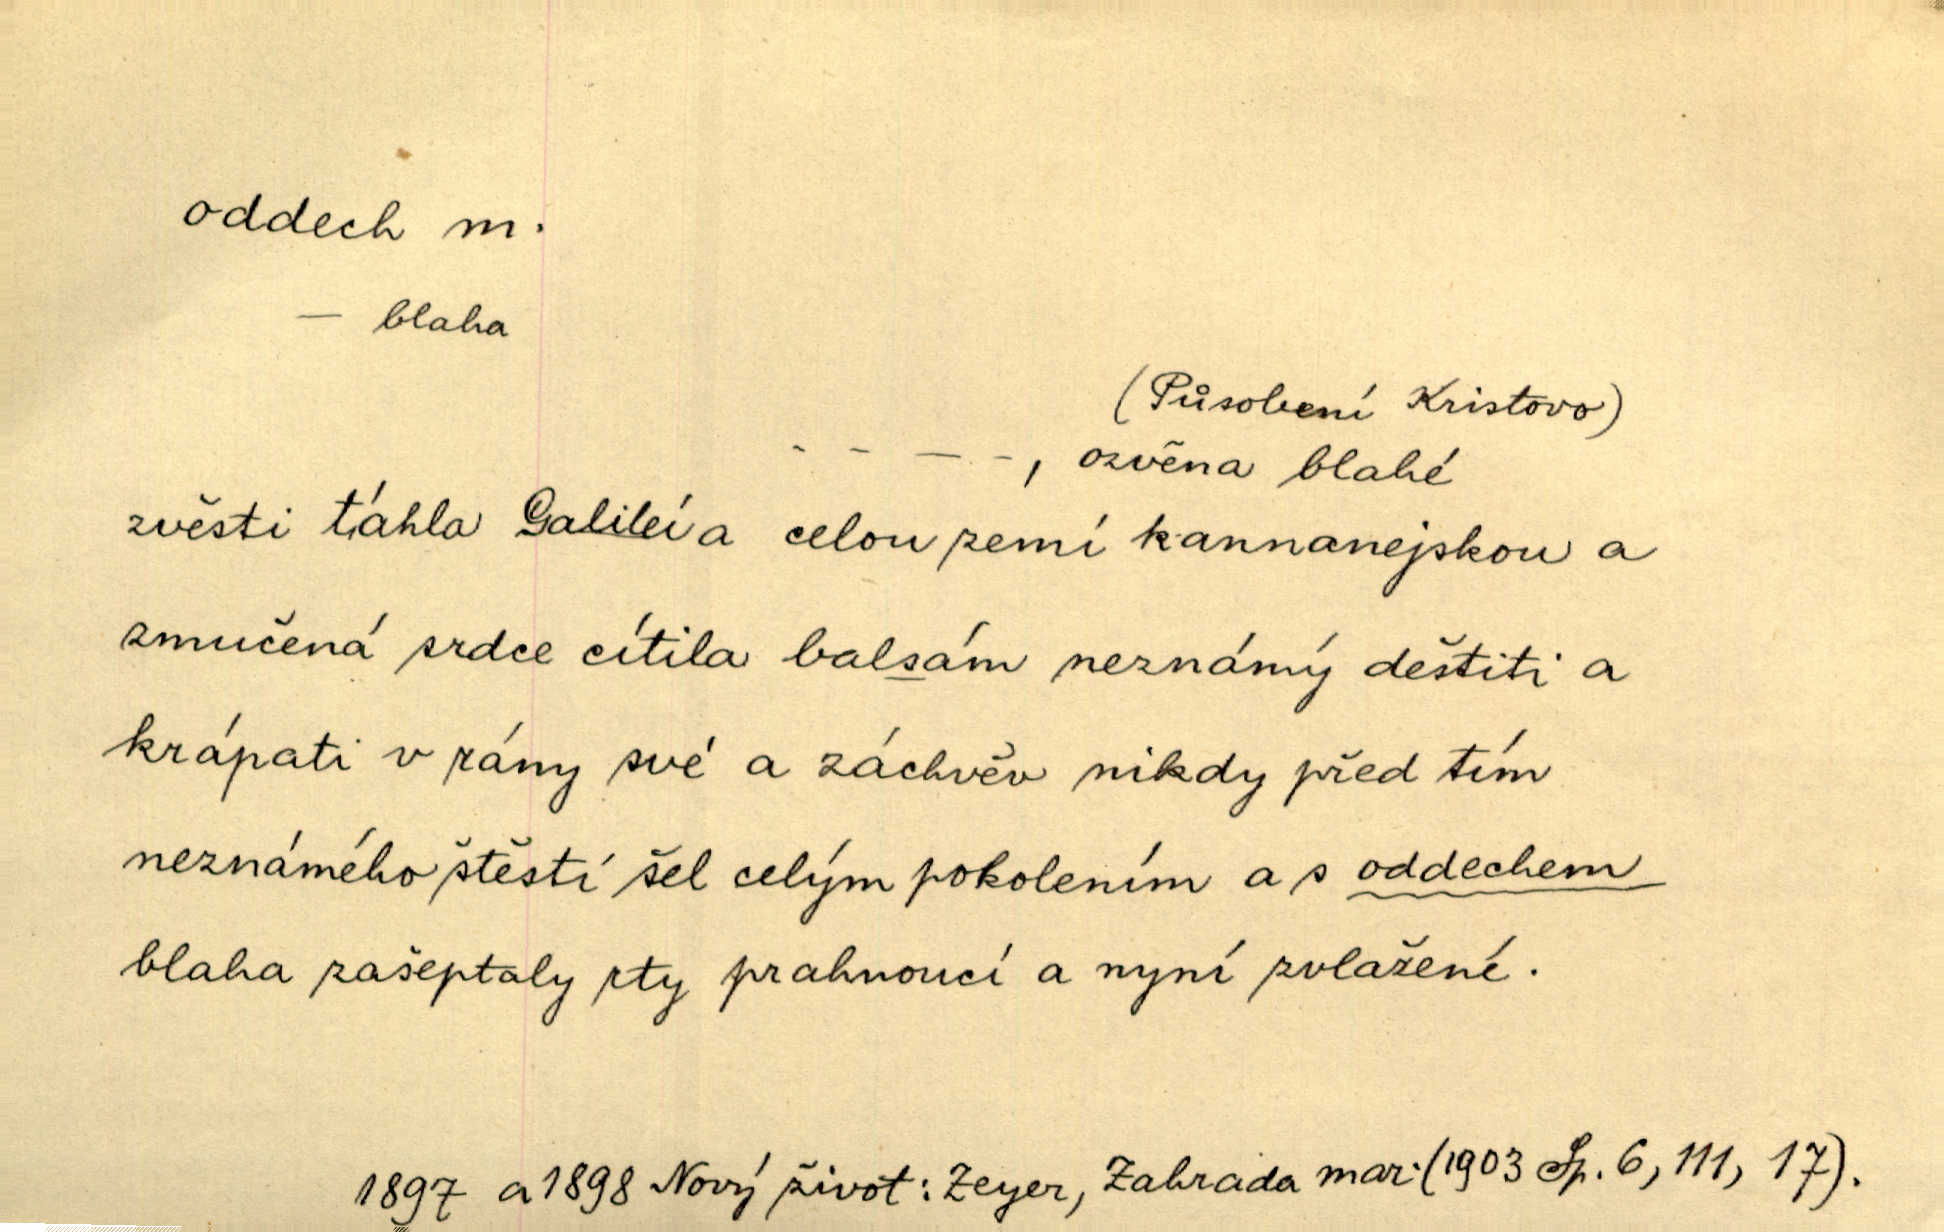 oddech m.
— blaha
(Působení Kristovo)
- - — -, ozvěna blahé
zvěsti táhla Galileí a celou zemí kannanejskou a
zmučená srdce cítila balsám neznámý deštiti a
krápati v rány své a záchvěv nikdy před tím
neznámého štěstí šel celým pokolením a s oddechem
blaha zašeptaly rty prahnoucí a nyní zvlažené.
1897 a 1898 Nový život: Zeyer, Zahrada mar. (1903 Sp. 6, 111, 17).